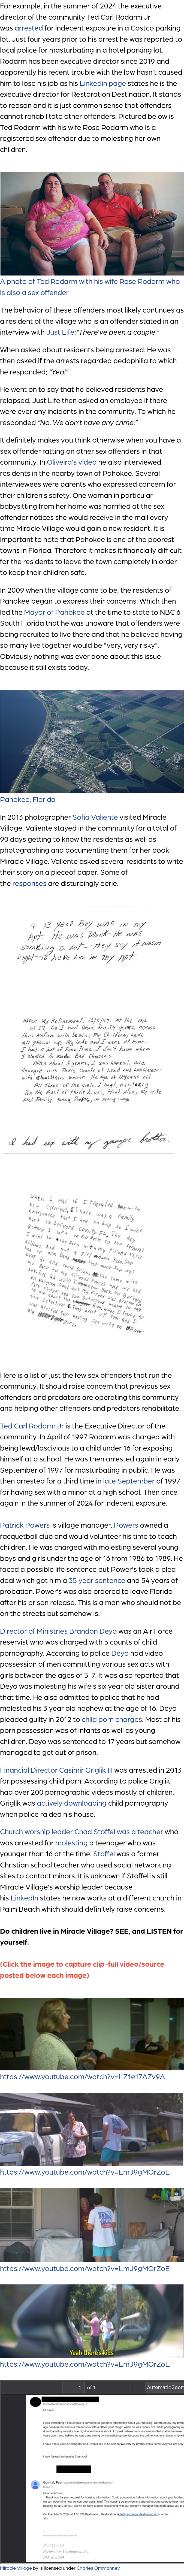 For example, in the summer of 2024 the executive
director of the community Ted Carl Rodarm Jr
was arrested for indecent exposure in a Costco parking
lot. Just four years prior to his arrest he was reported to
local police for masturbating in a hotel parking lot.
Rodarm has been executive director since 2019 and
apparently his recent trouble with the law hasn't caused
him to lose his job as his Linkedin page states he is the
executive director for Restoration Destination. It stands
to reason that it is just common sense that offenders
cannot rehabilitate other offenders. Pictured below is
Ted Rodarm with his wife Rose Rodarm who is a
registered sex offender due to molesting her own
children.
A photo of Ted Rodarm with his wife Rose Rodarm who
is also a sex offender
The behavior of these offenders most likely continues as
a resident of the village who is an offender stated in an
interview with Just Life;"There've been a couple."
When asked about residents being arrested. He was
then asked if the arrests regarded pedophilia to which
he responded; "Yea!"
He went on to say that he believed residents have
relapsed. Just Life then asked an employee if there
were ever any incidents in the community. To which he
responded "No. We don't have any crime."
It definitely makes you think otherwise when you have a
sex offender rather honestly admit that there is in that
community. In Oliveira's video he also interviewed
residents in the nearby town of Pahokee. Several
interviewees stated that they had serious concern for
their children's safety. One woman in particular
babysitting from her home was horrified at the sex
offender notices she would receive in the mail every
time Miracle Village would gain a new resident. It is
important to note that Pahokee is one of the poorest
towns in Florida. Therefore it makes it financially difficult
for the residents to leave the town completely in order
to keep their children safe.
In 2009 when the village came to be, the residents of
Pahokee began to express their concerns. Which then
led the Mayor of Pahokee at the time to state to NBC 6
South Florida that he was unaware that offenders were
being recruited to live there and that he believed having
so many live together would be "very, very risky".
Obviously nothing was ever done about this issue
because it still exists today.
Pahokee, Florida
In 2013 photographer Sofia Valiente visited Miracle
Village. Valiente stayed in the community for a total of
90 days getting to know the residents as well as
photographing and documenting them for her book
Miracle Village. Valiente asked several residents to write
their story on a piece of paper. Some of
the responses are disturbingly eerie.
A 13 year Boy was in my
Apt. He was Drunk. He was
smoking a lot. They say it wasnt
Right to have him in my Apt.
I had sex with my younger brother.
Here is a list of just the few sex offenders that run the
community. It should raise concern that previous sex
offenders and predators are operating this community
and helping other offenders and predators rehabilitate.
Ted Carl Rodarm Jr is the Executive Director of the
community. In April of 1997 Rodarm was charged with
being lewd/lascivious to a child under 16 for exposing
himself at school. He was then charged again in early
September of 1997 for masturbating in public. He was
then arrested for a third time in late September of 1997
for having sex with a minor at school. Then arrested
again in the summer of 2024 for indecent exposure.
Patrick Powers is village manager. Powers owned a
racquetball club and would volunteer his time to coach
young boys. He was arrested in 1992 for raping 11 boys
and girls under the age of 16 from 1986 to 1989. He
faced a possible life sentence but Power's took a plea
deal which got him a 35 year sentence and 54 years of
probation. Power's was also ordered to leave Florida
after his prison release. This evil man should not be
on the streets but sure enough he now is.
Director of Ministries Brandon Deyo was an Air Force
reservist who was charged with 5 counts of child
pornography. According to police Deyo had a video
possession of men committing various sex acts with
girls between the ages of 5-7. It was also reported that
Deyo was molesting his wife's six year old sister around
that time. He had admitted to police that he had
molested his 3 year old niece at the age of 16. Deyo
pleaded guilty in 2012 to child porn charges. Most of his
possession was of infant torture as well as young
children. Deyo was sentenced to 17 years but somehow
managed to get out of prison.
Financial Director Casimir Griglik III was arrested in 2013
for possessing child porn. According to police Griglik
had over 200 pornographic videos mostly of children.
Griglik was actively downloading child pornography
when police searched his house.
Church worship leader Chad Stoffel was a teacher who
was arrested for molesting a teenager who was
younger than 16 at the time. Stoffel was a former
Christian school teacher who used social networking
sites to contact minors. It is unknown if Stoffel is still
Miracle Village's worship leader because
his LinkedIn states he now works at a different church in
Palm Beach which should definitely raise concerns.
Do children live in Miracle Village? SEE, and LISTEN for
yourself.
(Click the image to capture clip-full video/source
posted below each image)
https://www.youtube.com/watch?v=LZ1e17AZv9A
https://www.youtube.com/watch?v=LmJ9gMQrZoE
https://www.youtube.com/watch?v=LmJ9gMQrZoE
Yeah there's kids
https://www.youtube.com/watch?v=LmJ9gMQrZoE
1 of 1 Automatic Zoom
I look forward to hearing from you!
Quintal, Paul
Good afternoon,
Paul Quintal
Restoration Destination, Inc.
Miracle Village by is licensed under Charles Ommanney